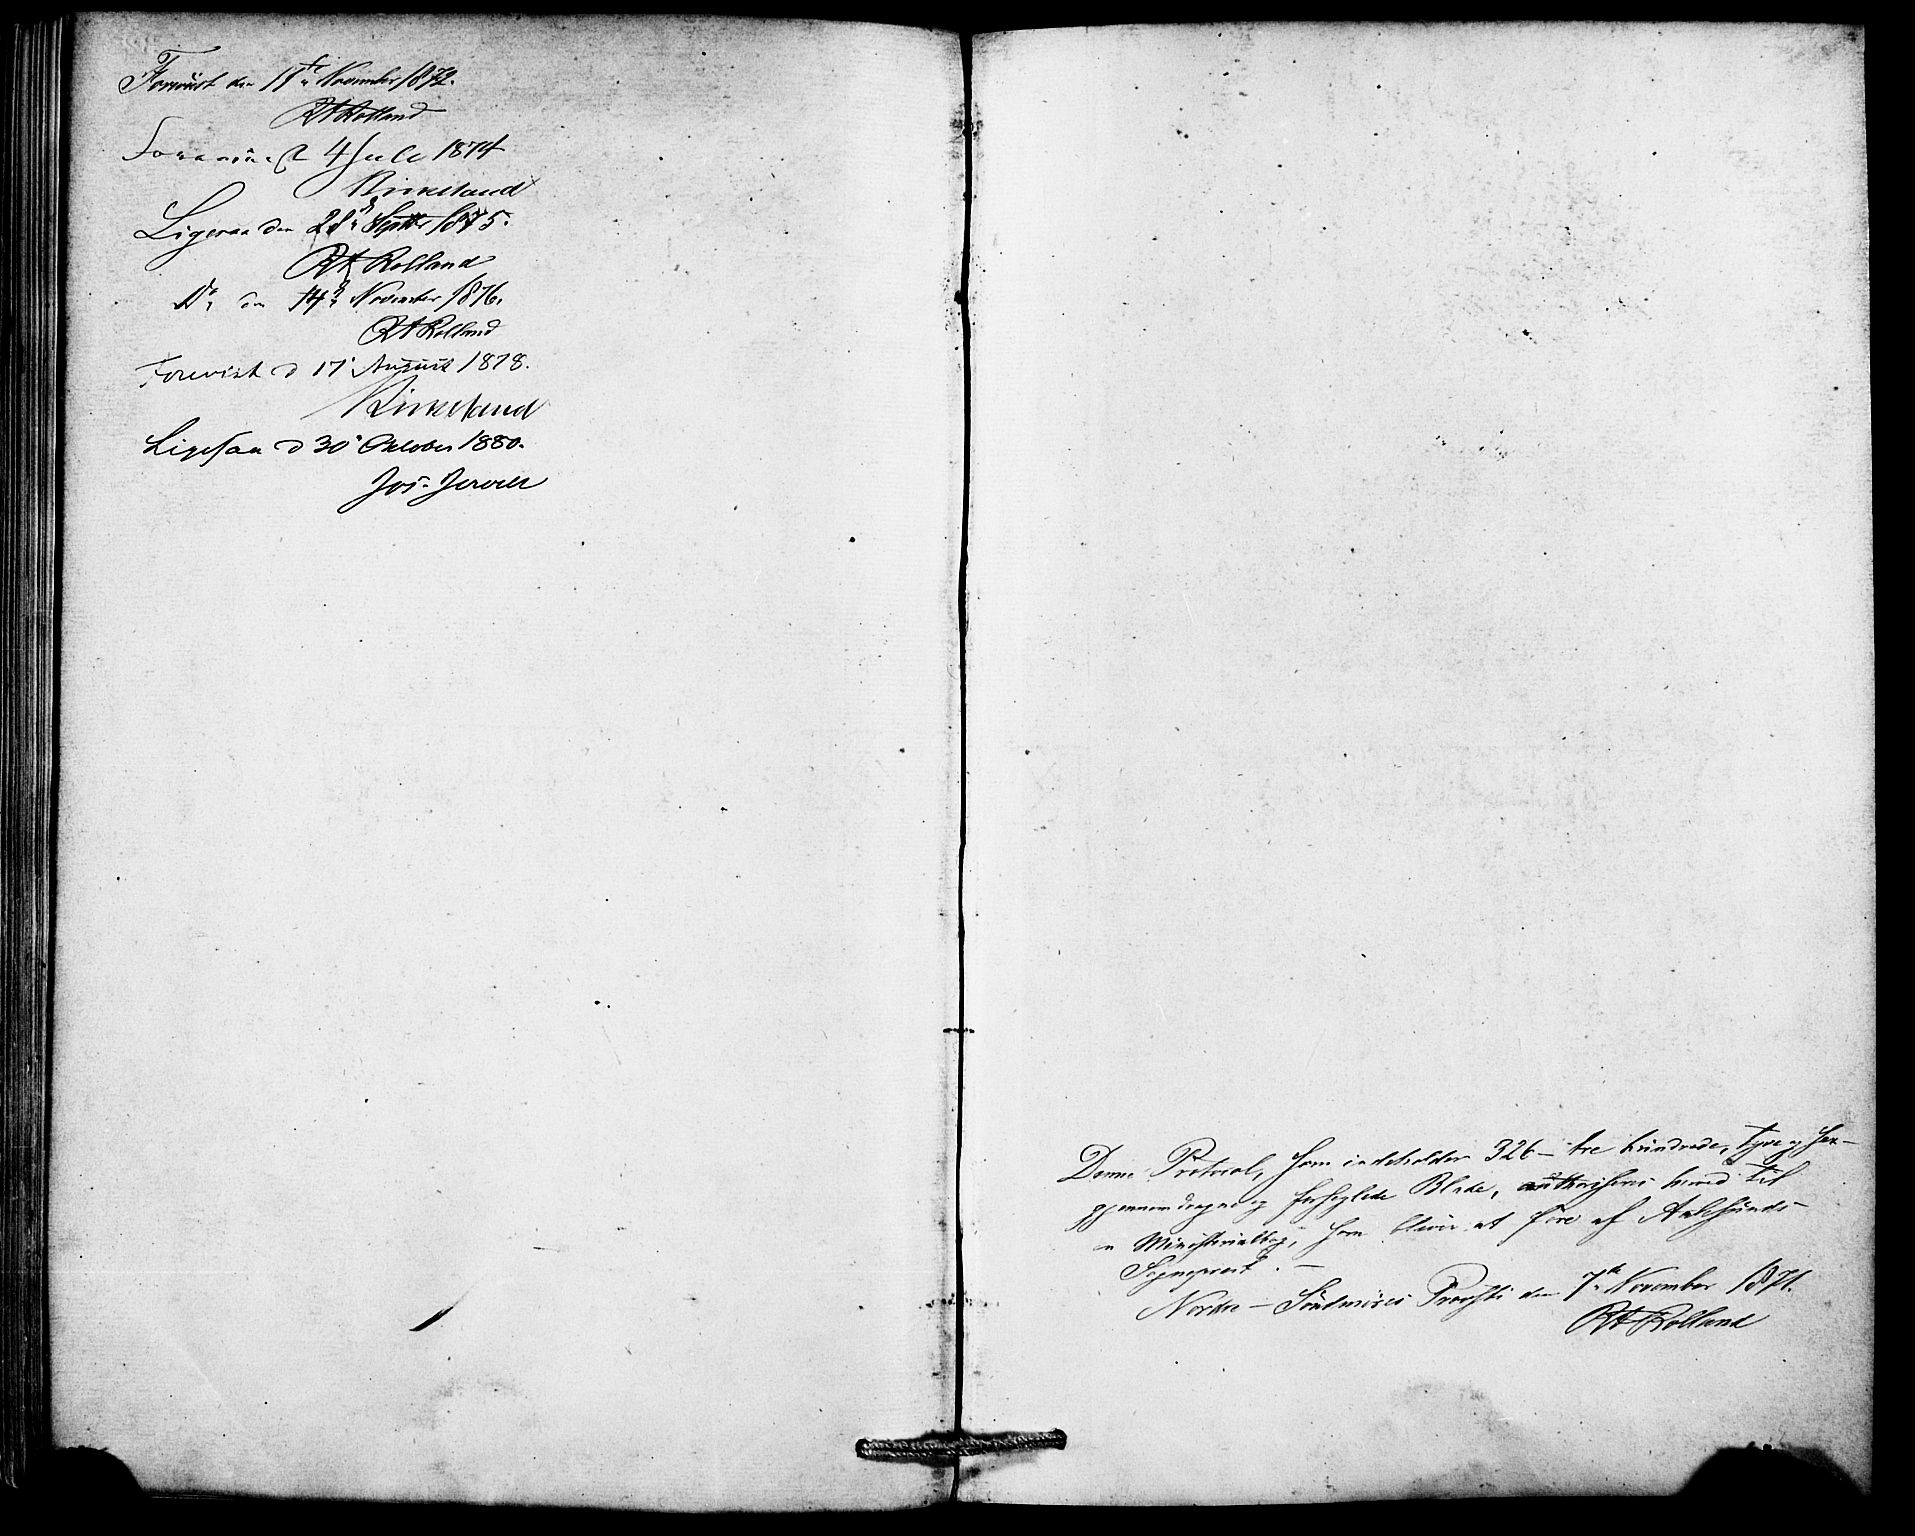 Forevist den 11te November 1872.
RARolland
Forevist 4 Juli 1874
Birkeland
Ligesaa den 28de Septbr 1875.
RA Rolland
Do den 14de November 1876.
RARolland
Forevist d 17' August 1878.
Birkeland
Ligesaa d 30' Oktober 1880.
Jos. Jervell
Denne Protocol, som indeholder 326 – tre hundrede, tyve og sex –
gjennemdragne og forseglede Blade, authoriseres herved til
en Ministerialbog, som bliver at føre af Aalesunds
Sognepræst. –
Nordre – Søndmøres Provsti den 7de November 1871.
RARolland